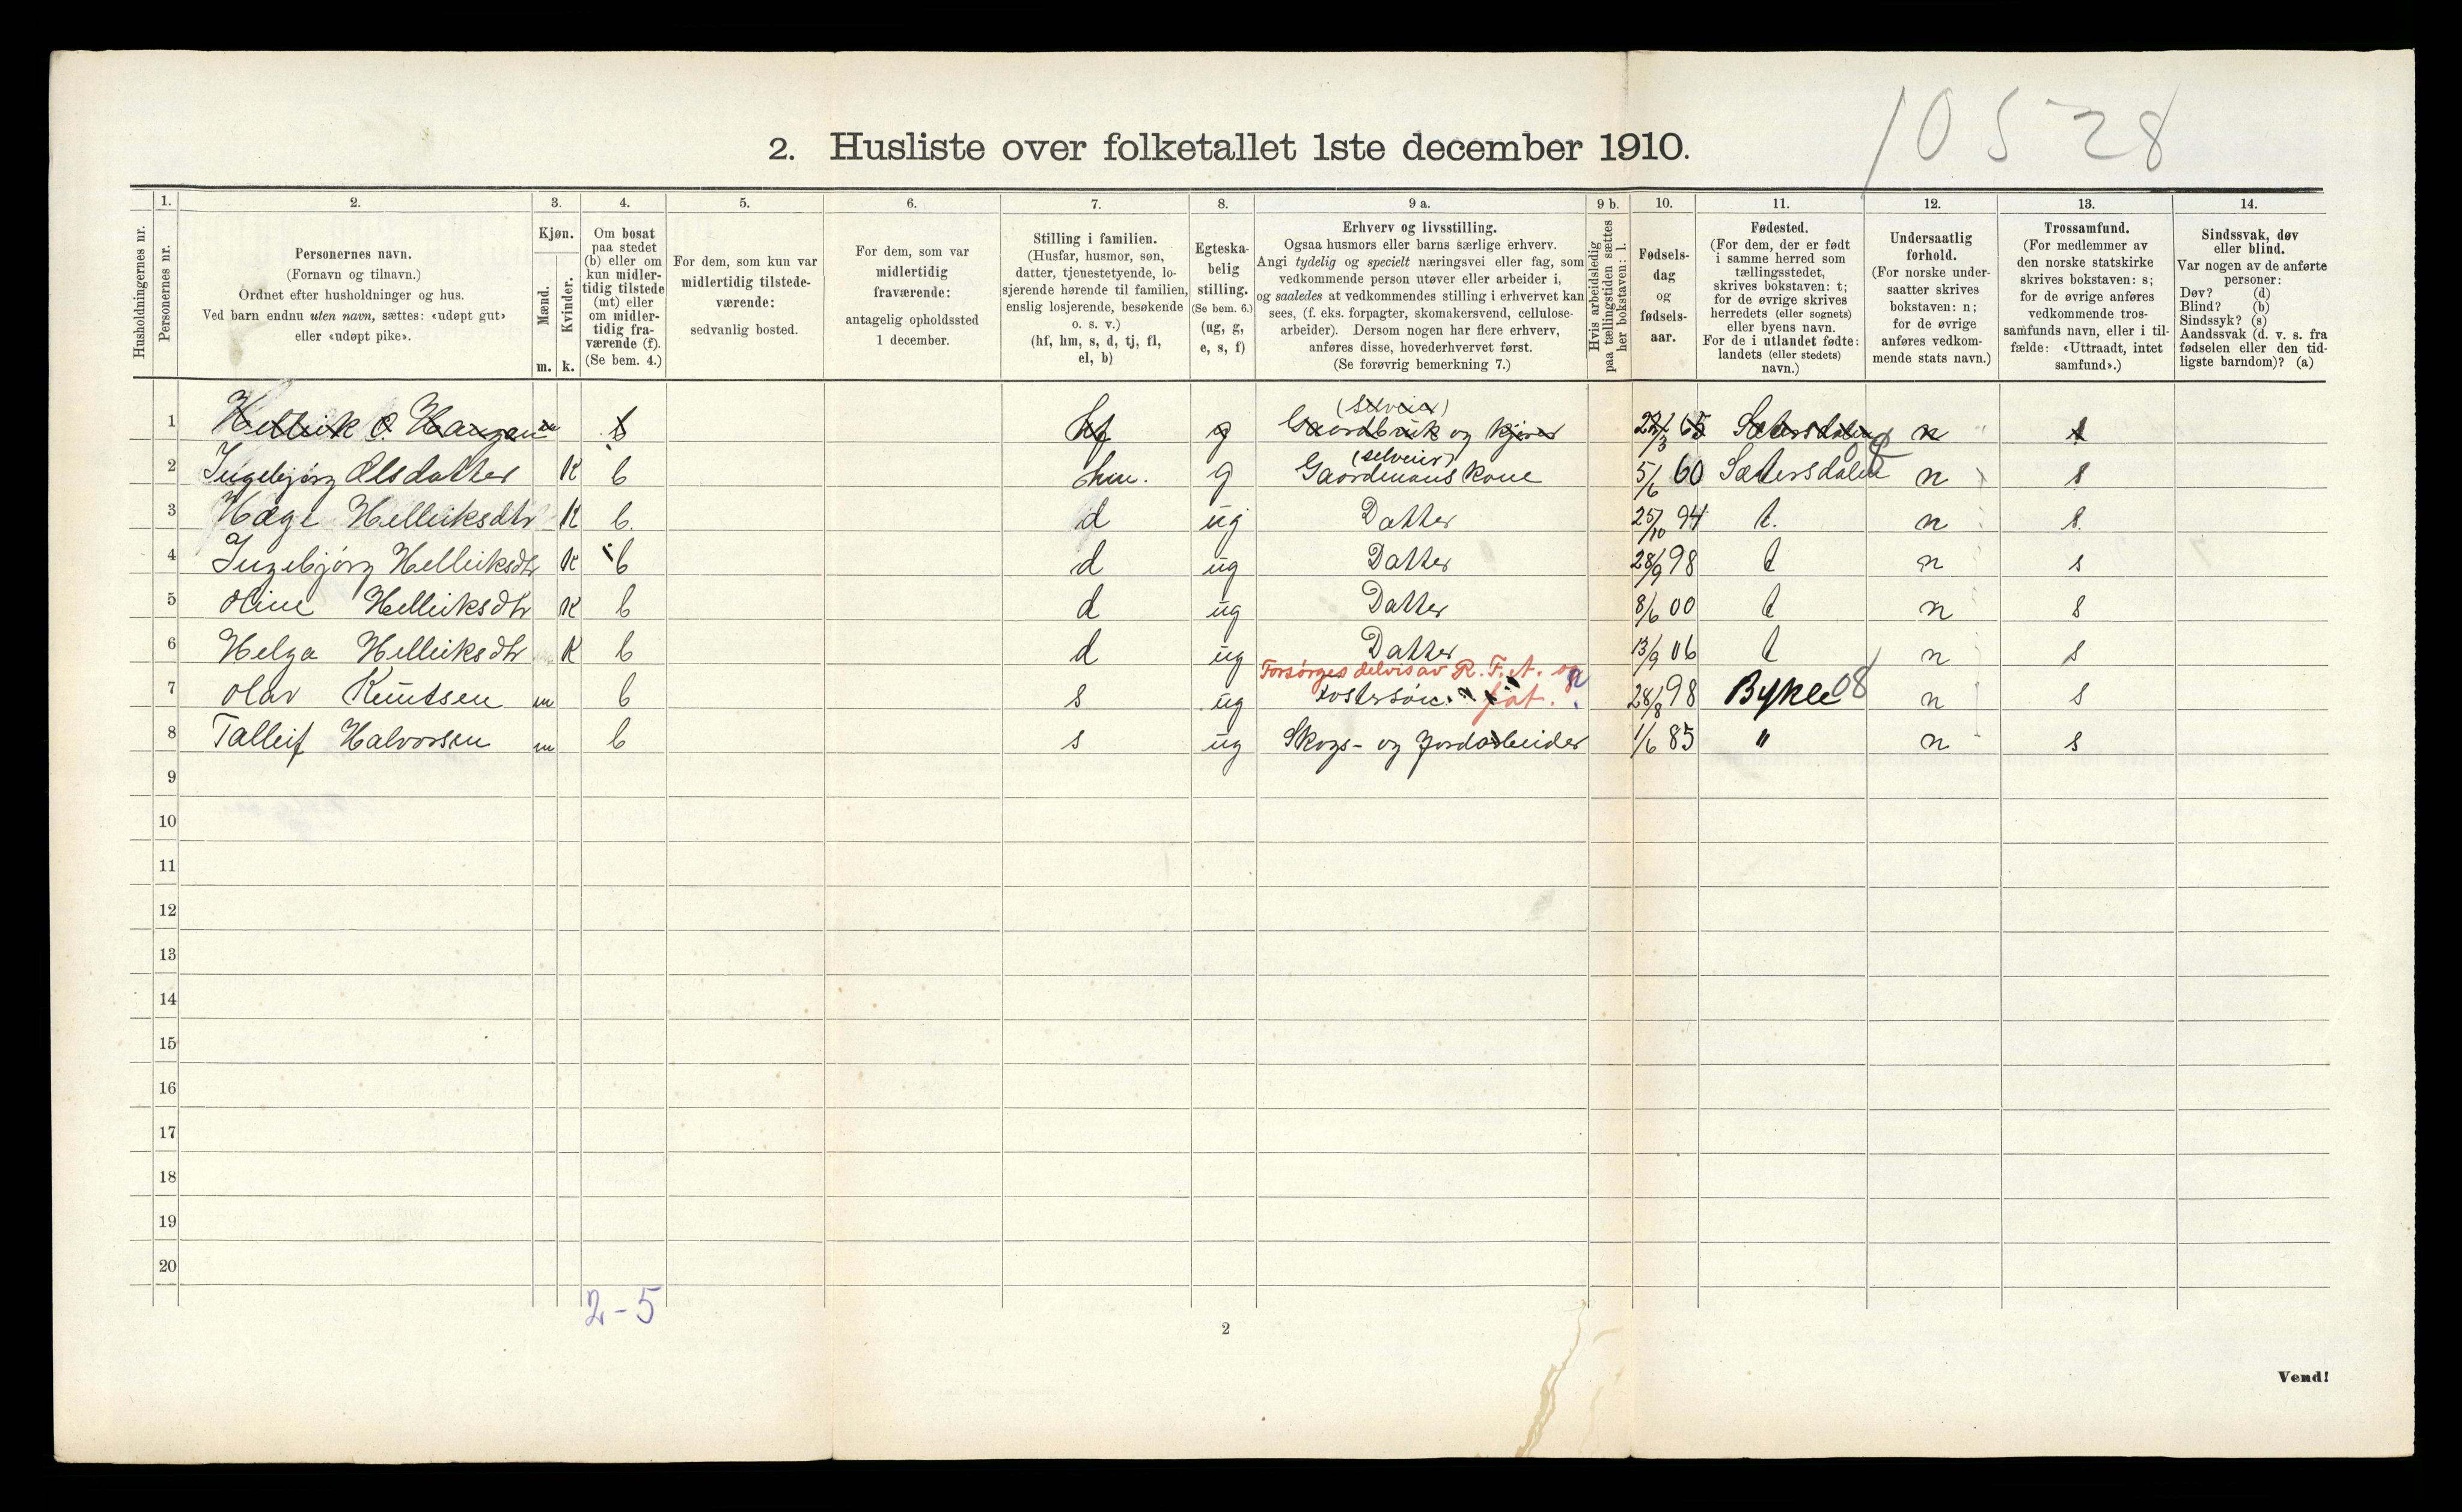 10528
2. Husliste over folketallet 1ste december 1910.
Husholdningernes nr.
1.
Personernes nr.
2.
Personernes navn.
(Fornavn og tilnavn.)
Ordnet efter husholdninger og hus.
Ved barn endnu uten navn, sættes: «udøpt gut»
eller «udøpt pike».
3.
Kjøn.
Mænd.
Kvinder.
m. k.
4.
Om bosat
paa stedet
(b) eller om
kun midler-
tidig tilstede
(mt) eller
om midler-
tidig fra-
værende (f).
(Se bem. 4.)
5.
For dem, som kun var
midlertidig tilstede-
værende:
sedvanlig bosted.
6.
For dem, som var
midlertidig
fraværende:
antagelig opholdssted
1 december.
7.
Stilling i familien.
(Husfar, husmor, søn,
datter, tjenestetyende, lo-
sjerende hørende til familien,
enslig losjerende, besøkende
o. s. v.)
(hf, hm, s, d, tj, fl,
el, b)
8.
Egteska-
belig
stilling.
(Se bem. 6.)
(ug, g,
e, s, f)
9 a.
Erhverv og livsstilling.
Ogsaa husmors eller barns særlige erhverv.
Angi tydelig og specielt næringsvei eller fag, som
vedkommende person utøver eller arbeider i,
og saaledes at vedkommendes stilling i erhvervet kan
sees, (f. eks. forpagter, skomakersvend, cellulose-
arbeider). Dersom nogen har flere erhverv,
anføres disse, hovederhvervet først.
(Se forøvrig bemerkning 7.)
9 b.
Hvis arbeidsledig
paa tællingstiden sættes
her bokstaven: l.
10.
Fødsels-
dag
og
fødsels-
aar.
11.
Fødested.
(For dem, der er født
i samme herred som
tællingsstedet,
skrives bokstaven: t;
for de øvrige skrives
herredets (eller sognets)
eller byens navn.
For de i utlandet fødte:
landets (eller stedets)
navn.)
12.
Undersaatlig
forhold.
(For norske under-
saatter skrives
bokstaven: n;
for de øvrige
anføres vedkom-
mende stats navn.)
13.
Trossamfund.
(For medlemmer av
den norske statskirke
skrives bokstaven: s;
for de øvrige anføres
vedkommende tros-
samfunds navn, eller i til-
fælde: «Uttraadt, intet
samfund».)
14.
Sindssvak, døv
eller blind.
Var nogen av de anførte
personer:
Døv? (d)
Blind? (b)
Sindssyk? (s)
Aandssvak (d. v. s. fra
fødselen eller den tid-
ligste barndom)? (a)
(Selveier)
1 Hellik O. Haugen m b hf g Gaardbruk og kjører 65 Sætersdalen n s
(selveier)
2 Ingebjørg Olsdatter K b hm. g Gaardmans kone 5/6 60 Sætersdalen n s
3 Hæge Helliksdtr K b. d ug Datter 25/10 94 t. n s.
4 Ingebjørg Helliksdtr K b d ug Datter 28/9 98 t n s
5 Oline Helliksdtr K b d ug Datter 8/6 00 t n s
6 Helga Helliksdtr K b d ug Datter 13/9 06 t n s
Forsørges delvis av R. F. A. og
7 Olav Knutsen m b s ug Fostersøn. fat. 28/8 98 Bykle 08 n s
8 Talleif Halvorsen m b s ug Skogs- og Jordarbeider 1/6 85 " n s
9
10
11
12
13
14
15
16
17
18
19
20
2-5
2
Vend!